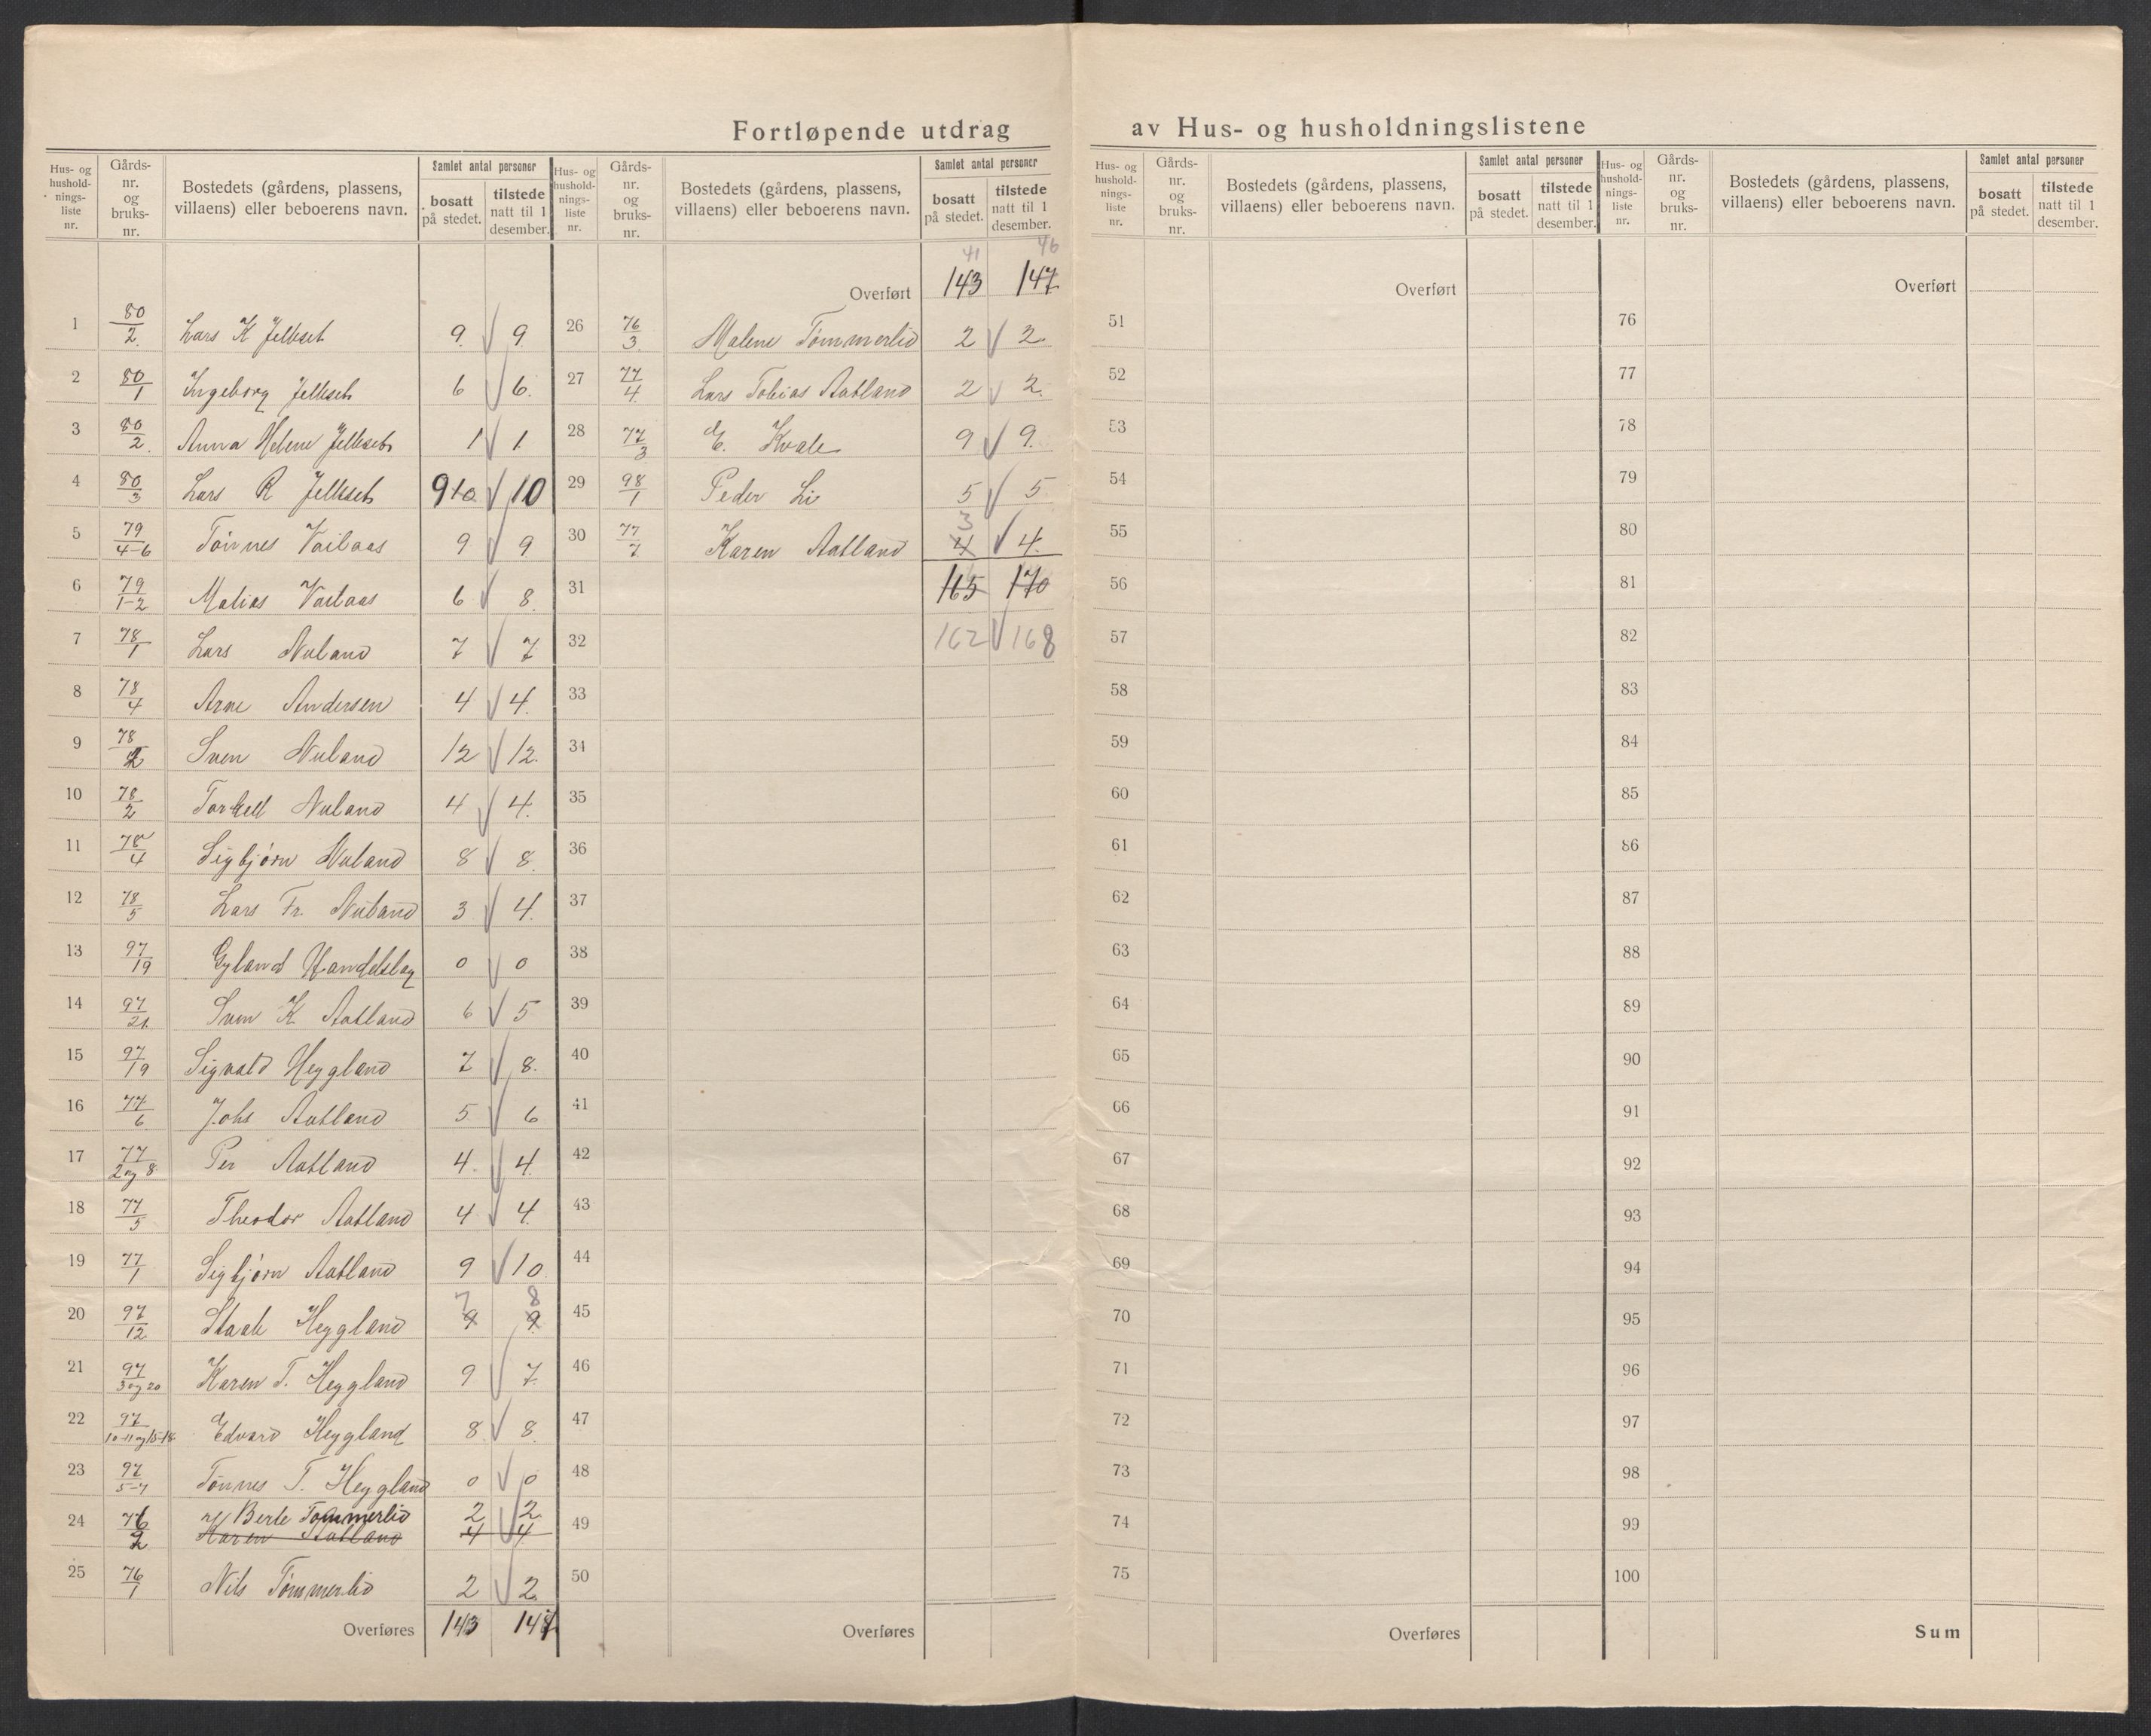 Fortløpende utdrag av Hus- og husholdningslistene
Hus- og hushold-nings-liste nr. | Gårds-nr. og bruks-nr. | Bostedets (gårdens, plassens, villaens) eller beboerens navn. | Samlet antal personer | bosatt på stedet. | tilstede natt til 1 desember.
1 80/2. Lars K Jelleset 9. 9.
2 80/1 Ingeborg Jelleset 6 6.
3 80/2. Anna Helene Jelleset 1 1.
4 80/3 Lars R Jelleset 9 10 10
5 79/4-6 Tønnes Vailaas 9 9
6 79/1-2 Matias Vailaas 6 8.
7 78/1 Lars Nuland 7 7
8 78/4 Arne Andersen 4 4.
9 78/2 Sven Nuland 12 12.
10 78/2 Torkell Nuland 4 4.
11 78/4 Sigbjørn Nuland 8 8.
12 78/5 Lars Fr. Nuland 3 4.
13 97/19 Gyland Handelslag 0 0
14 97/21. Sven K Aatland 6 5
15 97/19 Sigvald Heggland 7 8.
16 77/6. Johs Aatland 5 6
17 77/2 og 8 Per Aatland 4. 4.
18 77/5 Theodor Aatland 4 4.
19 77/1 Sigbjørn Aatland 9 10
7 8
20 97/12. Heggland 9 9
21 97/3 og 20 Karen T. Heggland 9 7.
22 97/10-11 og 15-18 Edvard Heggland 8. 8.
23 97/5-7 Tønnes T. Heggland 0 0
24 76/2 Berte Tømmerlid 2 2
Karen Aatland 4 4
25 76/1 Nils Tømmerlid 2 2.
Overføres 143 147
Hus- og hushold-nings-liste nr. | Gårds-nr. og bruks-nr. | Bostedets (gårdens, plassens, villaens) eller beboerens navn. | Samlet antal personer | bosatt på stedet. | tilstede natt til 1 desember.
41 46
Overført 143 147
26 76/3. Malene Tømmerlid 2 2.
27 77/4. Lars Tobias Aatland 2 2.
28 77/3 E. Kvale 9 9.
29 98/1 Peder Li 5 5
3
30 77/7 Karen Aatland 4 4.
31 165 170
32 162 168
33
34
35
36
37
38
39
40
41
42
43
44
45
46
47
48
49
50
Overføres
Hus- og hushold-nings-liste nr. | Gårds-nr. og bruks-nr. | Bostedets (gårdens, plassens, villaens) eller beboerens navn. | Samlet antal personer | bosatt på stedet. | tilstede natt til 1 desember.
Overført
51
52
53
54
55
56
57
58
59
60
61
62
63
64
65
66
67
68
69
70
71
72
73
74
75
Overføres
Hus- og hushold-nings-liste nr. | Gårds-nr. og bruks-nr. | Bostedets (gårdens, plassens, villaens) eller beboerens navn. | Samlet antal personer | bosatt på stedet. | tilstede natt til 1 desember.
Overført
76
77
78
79
80
81
82
83
84
85
86
87
88
89
90
91
92
93
94
95
96
97
98
99
100
Sum